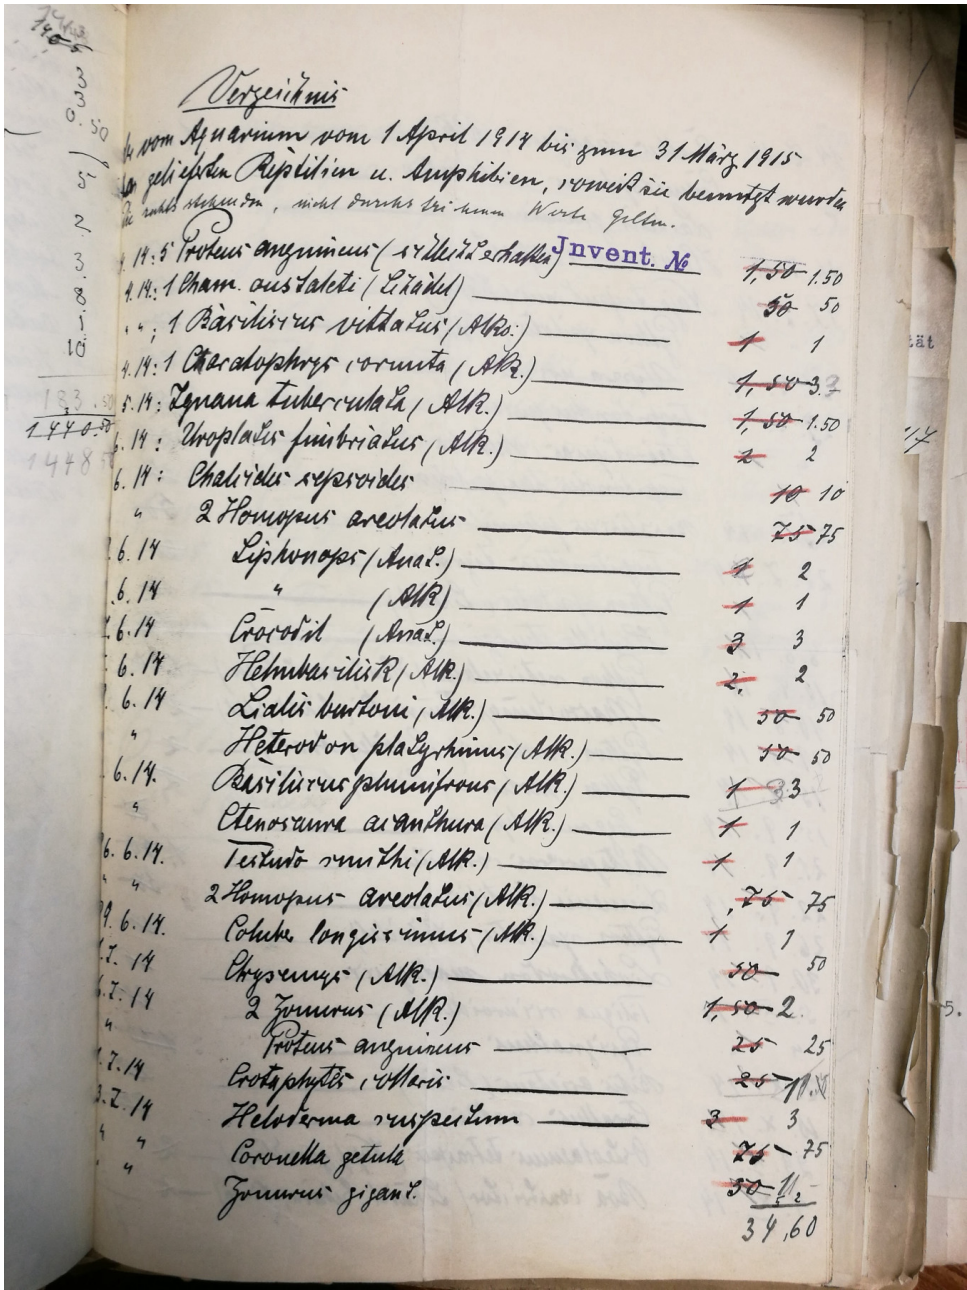 Verzeichnis
vom Aquarium vom 1 April 1914 bis zum 31 März 1915
gelieferten Reptilien u. Amphibien, soweit sie benutzt wurden
rechts stehenden, nicht durchstrichenen Werte gelten.
14: 5 Proteus anguineus ( erhalten) Invent. № 1,50 1.50
4.14: 1 Cham. oustaleti (Schädel) 50 50
" " ; 1 Basiliscus vittatus (Alko:) 1 1
4.14: 1 Charatophrys cornuta (Alk.) 1,50 3
5.14: Iguana tuberculata (Alk.) 1,50 1.50
6.14: Uroplates fimbriatus (Alk.) 2 2
6.14: Chalcides sepsoides 10 10
" 2 Homopus areolatus 75 75
6.14 Siphonops (Anat.) 1 2
6.14 " (Alk) 1 1
6.14 Crocodil (Anat.) 3 3
6.14 Helmbasilisk (Alk.) 2. 2
6.14 Lialis burtoni (Alk.) 50 50
" Heterodon platyrhinus (Alk.) 50 50
6.14. Basiliscus plumifrons (Alk.) 1 3
" Ctenosaura acanthura (Alk.) 1 1
6.6.14. Testudo smithi (Alk.) 1 1
" " 2 Homopus areolatus (Alk.) 75 75
9.6.14. Coluber longissimus (Alk.) 1 1
7. 14 Chrysemys (Alk.) 50 50
6.7.14 2 Zonurus (Alk.) 1,50 2
" Proteus anguineus 25 25
7.14 Crotaphytes collaris 25
3.7.14 Heloderma suspectum 3 3
" " Coronella getula 75 75
" " Zonurus gigant. 50
34,60
3
3
0.50
5
2
3.
8.
1.
10.
183.50
1440.50
1448
tät
17
5.